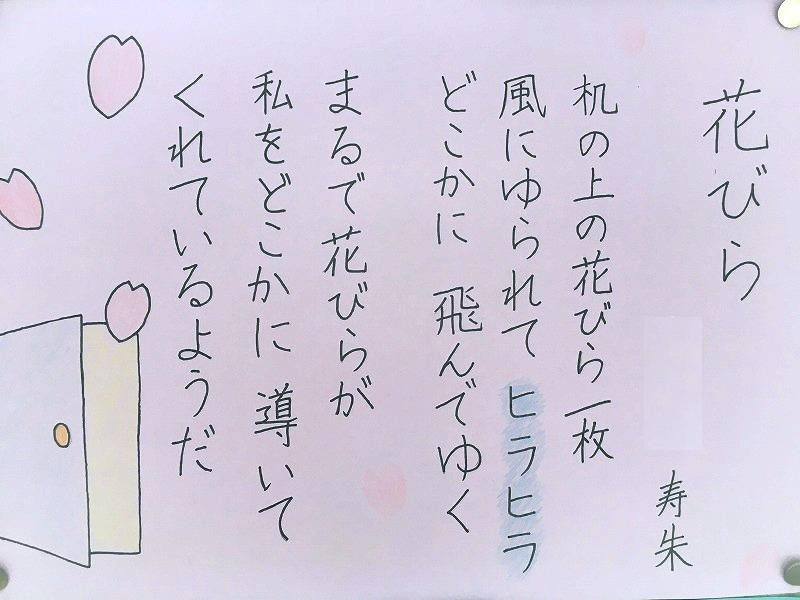 花びら
寿朱
机の上の花びら一枚
風にゆられて ヒラヒラ
どこかに 飛んでゆく
まるで花びらが
私をどこかに 導いて
くれているようだ